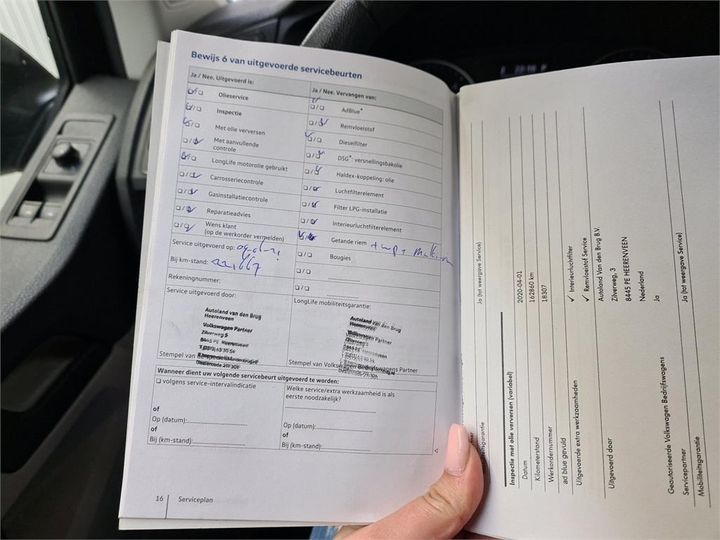 Bewijs 6 van uitgevoerde servicebeurten
Ja / Nee. Uitgevoerd is:
Olieservice
Inspectie
Met olie verversen
Met aanvullende
controle
LongLife motorolie gebruikt
Carrosseriecontrole
Gasinstallatiecontrole
Reparatieadvies
Wens klant
(op de werkorder vermelden)
Service uitgevoerd op:
Bij km-stand:
Rekeningnummer:
Service uitgevoerd door:
Autoland van den Brug
Heerenveen
Volkswagen Partner
Zilverweg 5
Stempel van
Ja / Nee. Vervangen van:
AdBlue®
Remvloeistof
Dieselfilter
DSG®: versnellingsbakolie
Haldex-koppeling: olie
Luchtfilterelement
Filter LPG-installatie
Interieurluchtfilterelement
Getande riem
Bougies
LongLife mobiliteitsgarantie:
Autoland van den Brug
Heerenveen
Volkswagen Partner
Stempel van Volkswagen Bedrijfswagens Partner
Wanneer dient uw volgende servicebeurt uitgevoerd te worden:
volgens service-intervalindicatie
of
Op (datum):
of
Bij (km-stand):
Welke service/extra werkzaamheid is als
eerste noodzakelijk?
Op (datum):
of
Bij (km-stand):
16 Serviceplan
Ja (tot weergave Service)
Inspectie met olie verversen (variabel)
Datum 2020-04-01
Kilometerstand 162860 km
Werkordernummer 18307
ad blue gevuld
Uitgevoerde extra werkzaamheden ✓ Interieurluchtfilter
✓ Remvloeistof Service
Uitgevoerd door Autoland Van den Brug B.V.
Zilverweg, 3
8445 PE HEERENVEEN
Nederland
Geautoriseerde Volkswagen Bedrijfswagens
Servicepartner Ja
Mobiliteitsgarantie Ja (tot weergave Service)